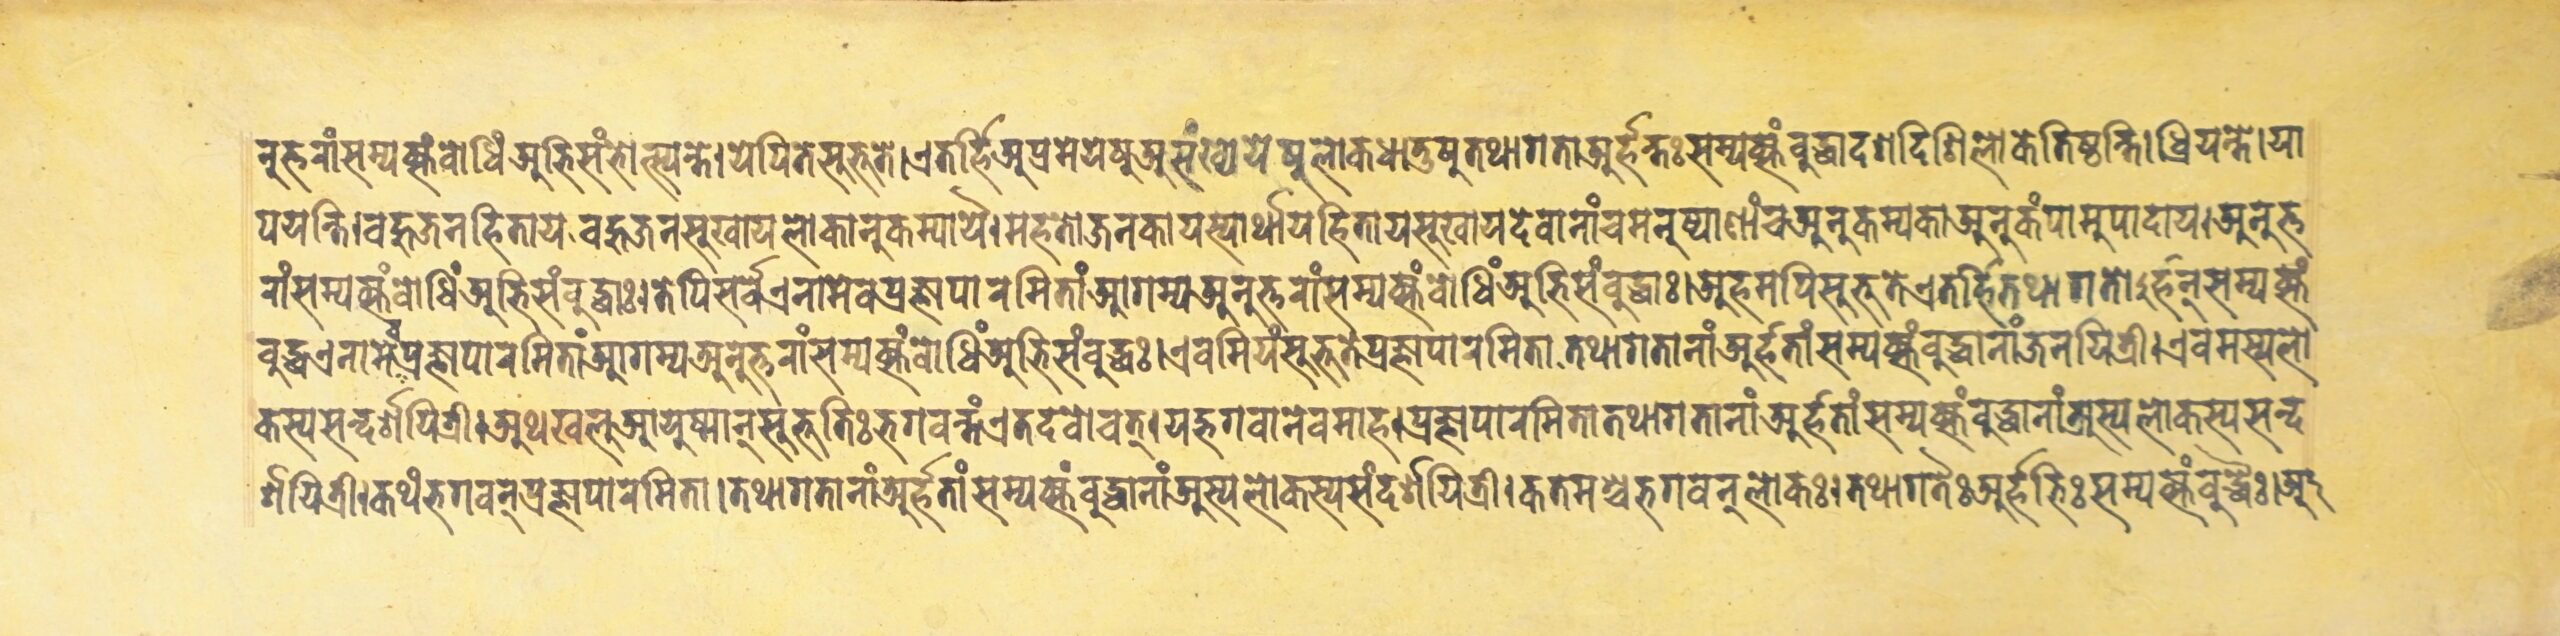 नुत्तरांसम्यक्संबोधिंअभिसंभोत्स्यन्ते।येपितेसुभूते।एतर्हिअप्रमेयेषुअसंख्येयेषुलोकधातुषुतथागताअर्हन्तःसम्यक्संबुद्धादशदिशिलोकेतिष्ठन्ति।ध्रियन्ते।या
पयन्ति।बहुजनहितायबहुजनसुखायलोकानुकम्पायै।महतोजनकायस्यार्थायहितायसुखायदेवानांचमनुष्याणांचअनुकम्पकाअनुकंपामुपादाय।अनुत्त
रांसम्यक्संबोधिंअभिसंबुद्धाः।तेपिसर्वेएनामेवप्रज्ञापारमितांआगम्यअनुत्तरांसम्यक्संबोधिंअभिसंबुद्धाः।अहमपिसुभूतेएतर्हितथागतोऽर्हन्सम्यक्सं
बुद्धएनामेवप्रज्ञापारमितांआगम्यअनुत्तरांसम्यक्संबोधिंअभिसंबुद्धः।एवमियंसुभूतेप्रज्ञापारमितातथागतानांअर्हतांसम्यक्संबुद्धानांजनयित्री।एवमस्यलो
कस्यसन्दर्शयित्री।अथखलुआयुष्मान्सुभूतिःभगवन्तंएतदवोचत्।यद्भगवानेवमाह।प्रज्ञापारमितातथागतानांअर्हतांसम्यक्संबुद्धानांअस्यलोकस्यसन्द
र्शयित्री।कथंभगवन्प्रज्ञापारमिता।तथागतानांअर्हतांसम्यक्संबुद्धानांअस्यलोकस्यसंदर्शयित्री।कतमश्चभगवन्लोकः।तथागतैःअर्हद्भिःसम्यक्संबुद्धैः।आ